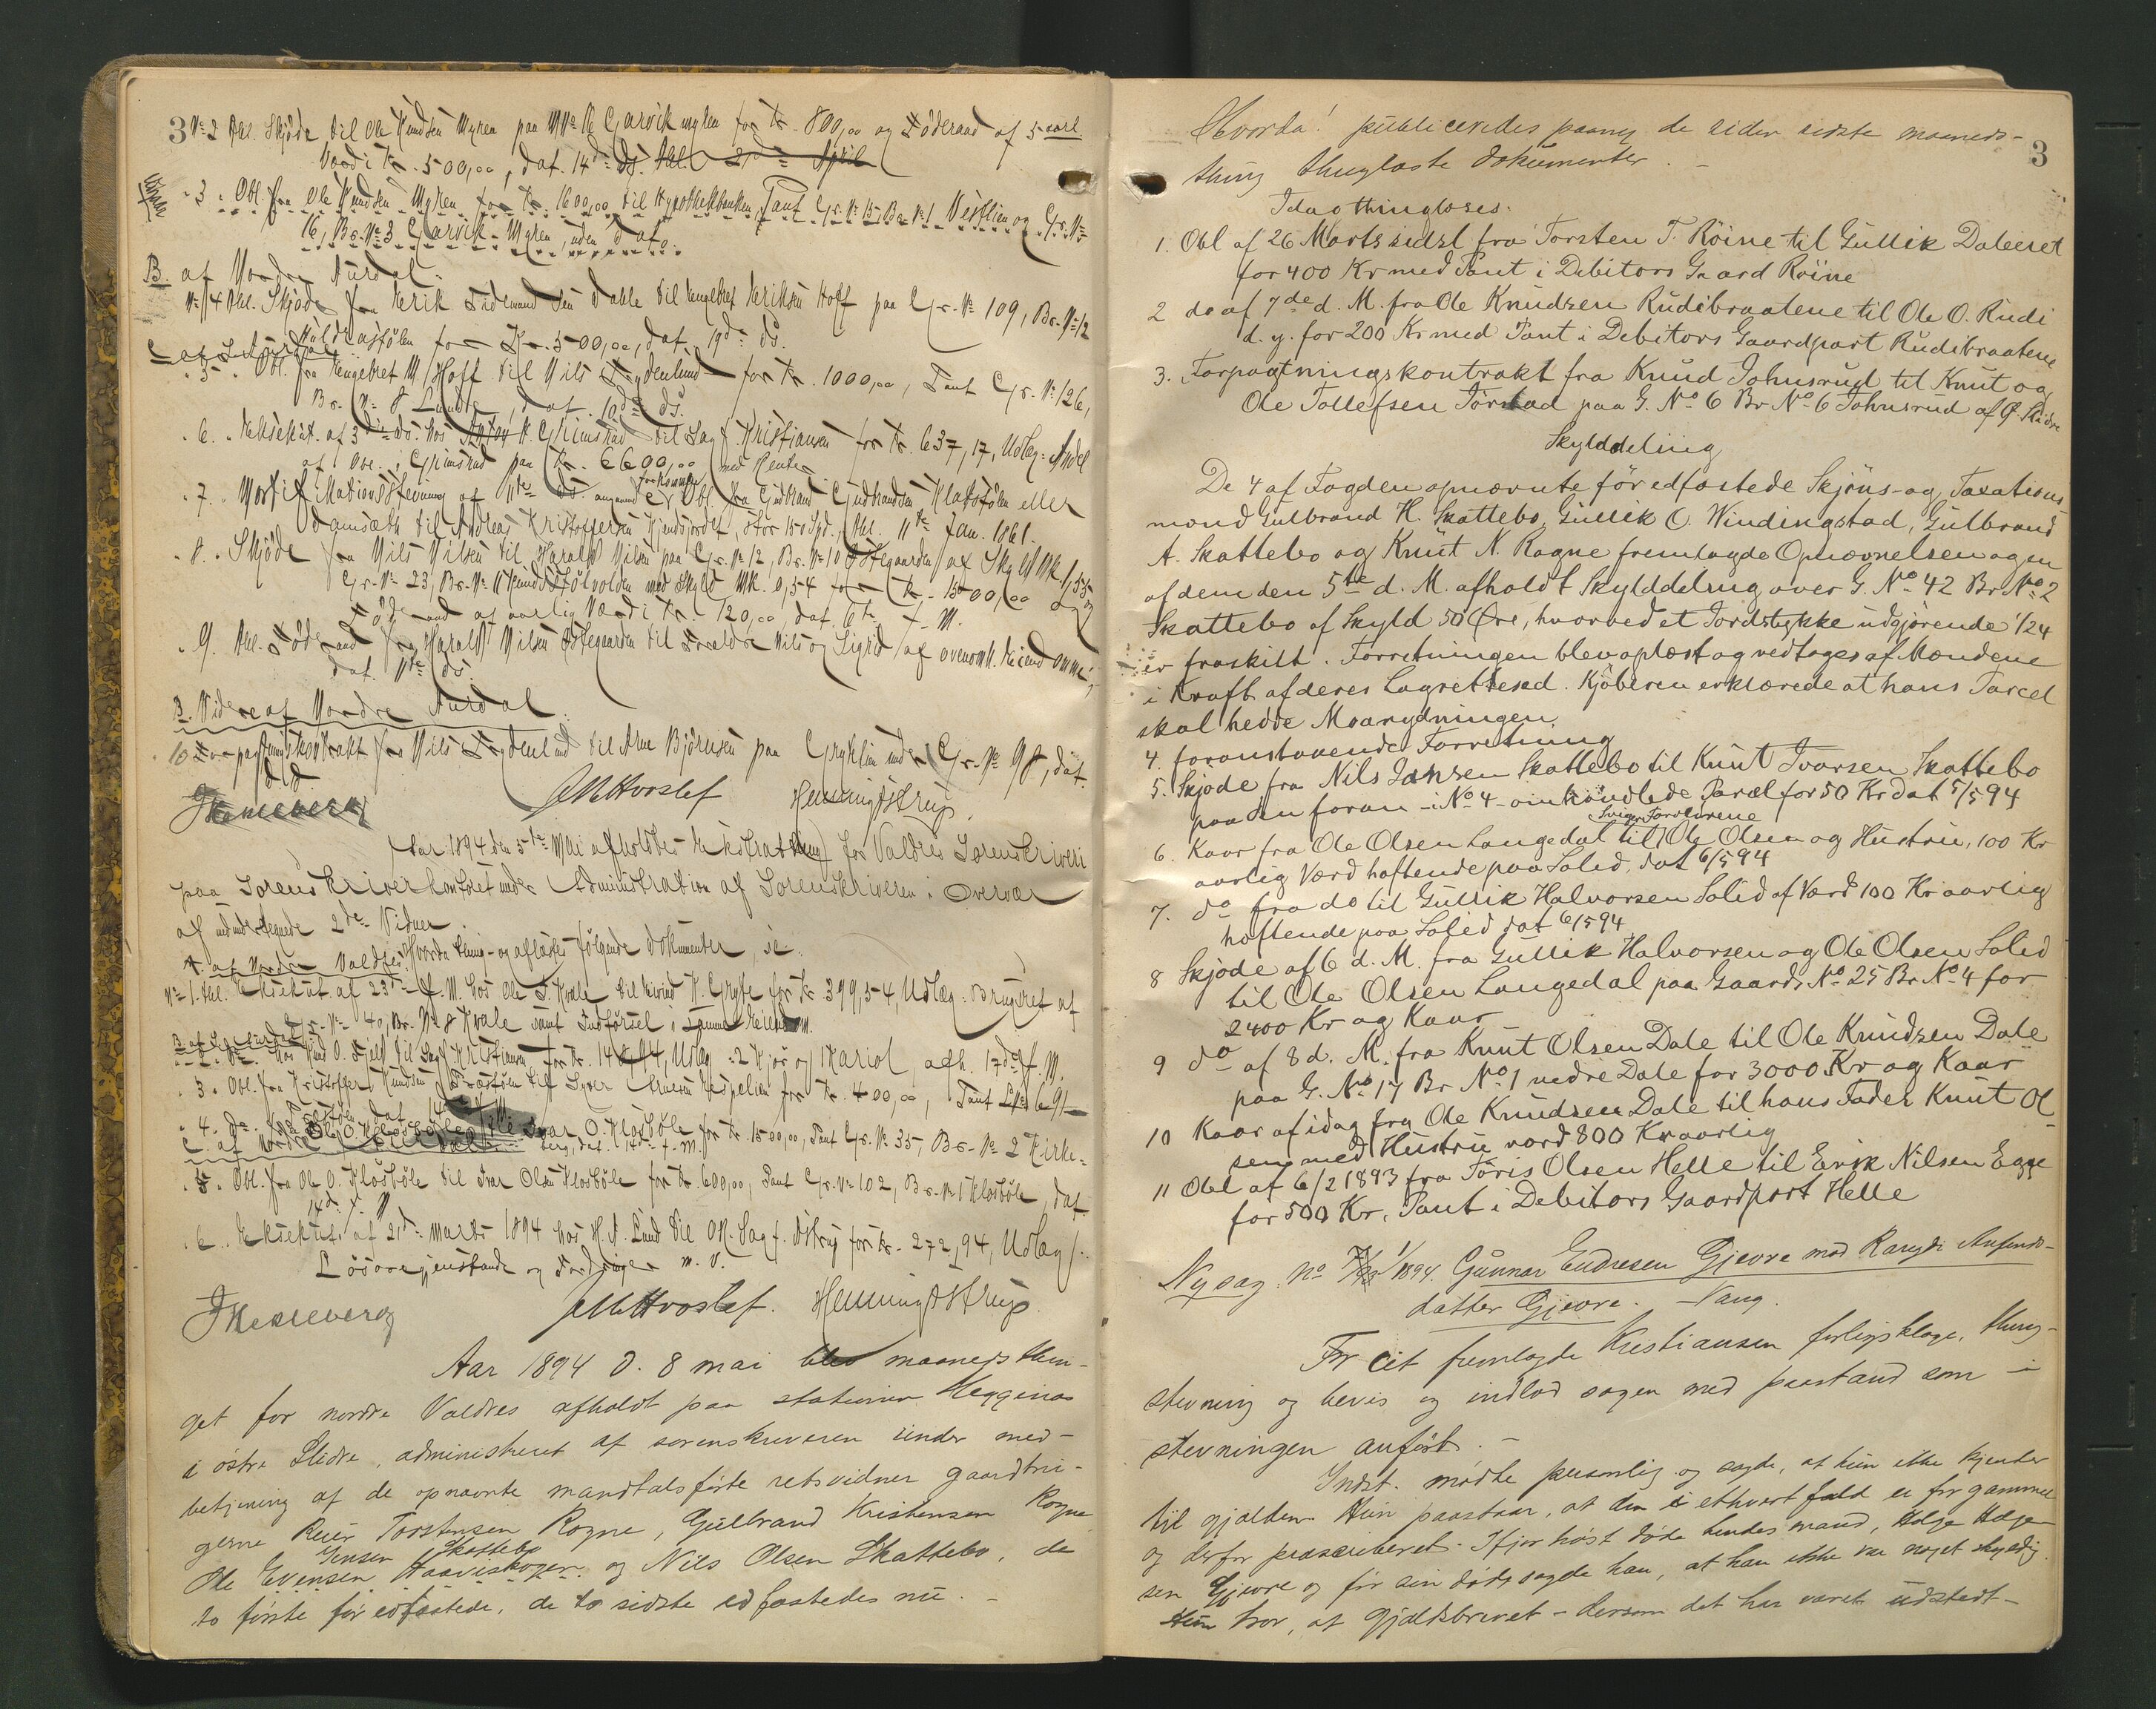 3
No 2 Afl. Skjøde til Ole Knudsen Myren paa Gjarvikmyren for Kr. 800,00 og Föderaad af 5 aarl
Værdi Kr. 500,00, dat. 14de ds.
" 3. Obl. fra Ole Knudsen Myren for Kr. 1600,00 til Hypothekbanken, Pant Gr. No 15 Br. No 1 Vestlien og Gr. No
16, Br. No 3 Gjarvik-Myren, uden dato.
B. af Nordre Aurdal.
No 4 Afl. Skjøde fra Erik Tidemandsen Dahle til Engebret Eriksen Hoff paa Gr. No 109, Br. No 12
for Kr. 500,00, dat. 19de ds.
" 5. Obl. fra Engebret M. Hoff til Nils Frydenlund for Kr. 1000,00, Pant Gr. No 126,
Br. No 8 Lunde, dat. 10de ds.
" 6. Eksekut. af 3die ds. hos Grimstad til Sagf. Kristiansen for Kr. 637,17, Udlæg: Andel
af Obl. i Grimstad paa Kr. 6600,00 med Renter
" 7. Mortifikationsstevning af 11te ds. angaaende forkommen Obl. fra Gudbrand Gudbrandsen Klatstølen eller
Damsæth til Andreas Kristoffersen, stor 150 Spd., thl. 11te Jan. 1861.
" 8. Skjöde fra Nils Nilsen til Harald Nilsen paa Gr. No 12, Br. No 10 Østegaarden af Skyld Mk. 1,55 og
Gr. No 23, Br. No med Skyld Mk. 0,54 for Kr. 1500,00 og
Föderaad af aarlig Værdi Kr. 120,00, dat. 6te f. M.
" 9. Afl. Föderaad fra Harald Nilsen Østegaarden til Forældre Nils og Sigrid af ovenomh. Eiendomme,
dat. ds.
B. Videre af Nordre Aurdal.
10 Forpagtningskontrakt fra Nils Frydenlund til Arne Björnsen paa under Gr. No 98, dat.
d. d.
JMHvoslef Henning Astrup.
Aar 1894 den 5te Mai afholdtes Ekstrathing for Valdres Sorenskriveri
paa Sorenskriverkontoret under Administration af Sorenskriveren i Overvær
af undertegnede 2de Vidner
Hvorda thing- og aflæstes følgende Dokumenter, se
A. af Nordre Valdres.
No 1. Afl. Eksekut. af 23de f. M. hos Ole T. Kvale til K. Gryte for Kr. 399,54, Udlæg: Brugsret af
Gr. No 40, Br. No 8 Kvale samt Indførsel i samme Eiendom.
" 2. hos Knud O. til Sagf. Kristiansen for Kr. Udlæg: 2 Kjør og 1 Kariol, afh. 17de f. M.
" 3. Obl. fra Kristoffer Knudsen til for Kr. 400,00, Pant
" 4. do. fra Ole O. Klosbøle til Ivar O. Klosbøle for Kr. 1500,00, Pant Gr. No 35, Br. No 2 Kirke-
berg, dat. 14de f. M.
C. af Nordre Aurdal
" 5. Obl. fra Ole O. Klosbøle til Ivar Olsen Klosbøle for Kr. 600,00, Pant Gr. No 102, Br. No 1 Klosbøle, dat.
14de f. M
" 6. Eksekut. af 21de marts 1894 hos H. J. Lund til OR. Sagf. Astrup for Kr. 272,94, Udlæg i
Lösøregjenstande og Fordringer m. v.
JMHvoslef. Henning Astrup
Aar 1894 d. 8 mai blev maanedsthin-
get for nordre Valdres afholdt paa stationen Heggenæs
i østre Slidre, administreret af sorenskriveren under med-
betjening af de opnævnte mandtalsførte retsvidner gaardbru-
gerne Torstensen Rogne, Gulbrand Kristensen Rogne
Jensen Skattebo
Ole Evensen Haaveskogen og Nils Olsen Skattebo, de
to første før edfæstede, de to sidste edfæstedes nu. –
3
Hvorda! publiceredes paany de siden sidste maaneds-
thing thinglæste dokumenter. –
Idag thinglæses.
1. Obl af 26 Marts sidst fra Torsten T. Röine til Gullik Daleeiet
for 400 Kr med Pant i Debitors Gaard Röine
2 do af 7de d. M. fra Ole Knudsen Rudibraatene til Ole O. Rudi
d. y. for 200 Kr med Pant i Debitors Gaardpart Rudibraatene
3. Forpagtningskontrakt fra Knud Johnsrud til Knut og
Ole Tollefsen Jörstad paa G. No 6 Br No 6 Johnsrud af Ø. Slidre
Skylddeling
De 4 af Fogden opnævnte för edfæstede Skjöns- og Taxations-
mænd Gulbrand H. Skattebo, Gullik O. Windingstad, Gulbrand
A. Skattebo og Knut N. Rogne fremlagde Opnævnelsen og en
af dem den 5te d. M. afholdt Skylddeling over G. No 42 Br No 2
Skattebo af Skyld 50 Øre, hvorved et Jordstykke udgjörende 1/24
er fraskilt. Forretningen blev oplæst og vedtages af Mændene
i Kraft af deres Lagretteed. Kjöberen erklærede at hans Parcel
skal hedde Moarydningen.
4. foranstaaende Forretning
5. Skjøde fra Nils Jansen Skattebo til Knut Ivarsen Skattebo
paa den foran – i No 4 – omhandlede Parcel for 50 Kr dat 5/5 94
Sviger Forældrene
6. Kaar fra Ole Olsen Langedal til Ole Olsen og Hustru, 100 Kr
aarlig Værd heftende paa Solid, dat 6/5 94
7. do fra do til Gullik Halvorsen Solid af Værd 100 Kr aarlig
heftende paa Solid dat 6/5 94
8 Skjøde af 6 d. M. fra Gullik Halvorsen og Ole Olsen Solid
til Ole Olsen Langedal paa Gaards No 25 Br No 4 for
2400 Kr og Kaar
9 do af 8 d. M. fra Knut Olsen Dale til Ole Knudsen Dale
paa G. No 17 Br No 1 nedre Dale for 3000 Kr og Kaar
10 Kaar af idag fra Ole Knudsen Dale til hans Fader Knut Ol-
sen med Hustru værd 800 Kr aarlig
11 Obl af 6/2 1893 fra Jöris Olsen Helle til Erik Nilsen Egge
for 500 Kr. Pant i Debitors Gaardpart Helle
Ny sag. No 1/1894. Gunnar Endresen Gjevre mod Ranghi Anfinds-
datter Gjevre. – Vang.
For cit fremlagde Kristiansen forligsklage, thing-
stevning og bevis og indlod sagen med paastand som i
stevningen anført. –
Indst. mødte personlig og sagde, at hun ikke kjender
til gjælden. Hun paastaar, at den i ethvert fald er for gammel
og derfor præscriberet. Ifjor høst døde hendes mand, Helge Helge-
sen Gjevre og før sin død sagde han, at han ikke var noget skyldig.
Hun tror, at gjældsbrevet – dersom det har været udstedt –